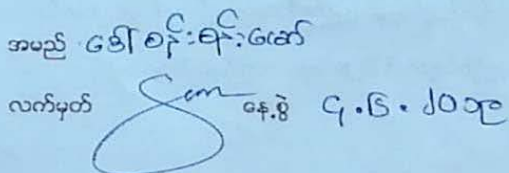 အမည် ဒေါ်စန်းစန်းဆော်
လက်မှတ် နေ့စွဲ ၄.၆.၂၀၁၉